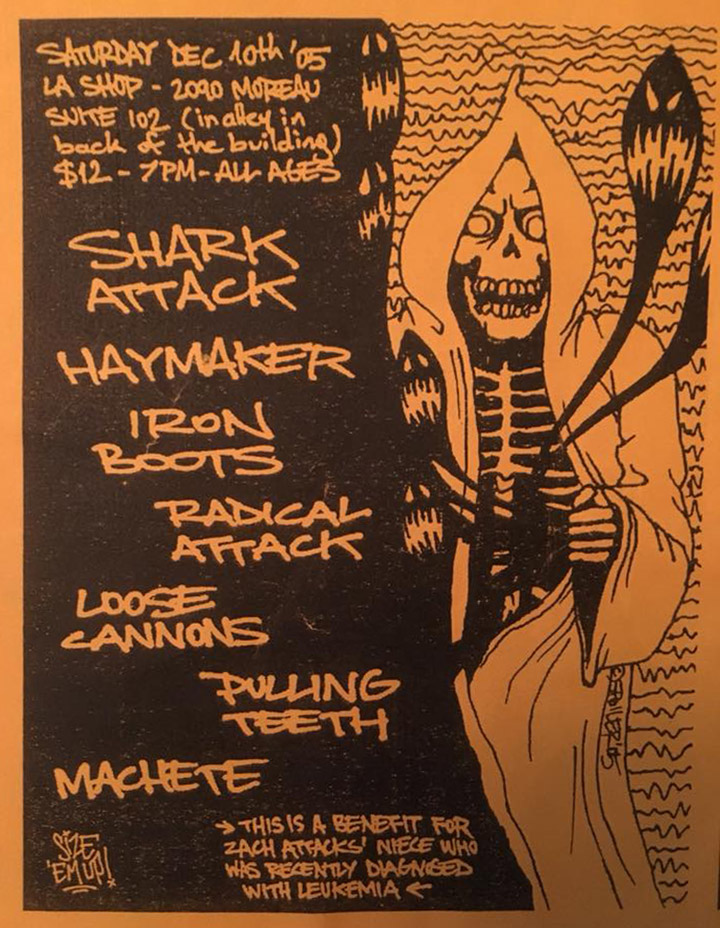 SATURDAY DEC 10th '05
LA SHOP - 2090 MOREAU
SUITE 102 (in alley in
back of the building)
$12 - 7PM - ALL AGES
SHARK
ATTACK
HAYMAKER
IRON
BOOTS
RADICAL
ATTACK
LOOSE
CANNONS
PULLING
TEETH
MACHETE
SIZE
'EM UP!
→ THIS IS A BENEFIT FOR
ZACH ATTACKS' NIECE WHO
WAS RECENTLY DIAGNOSED
WITH LEUKEMIA ←